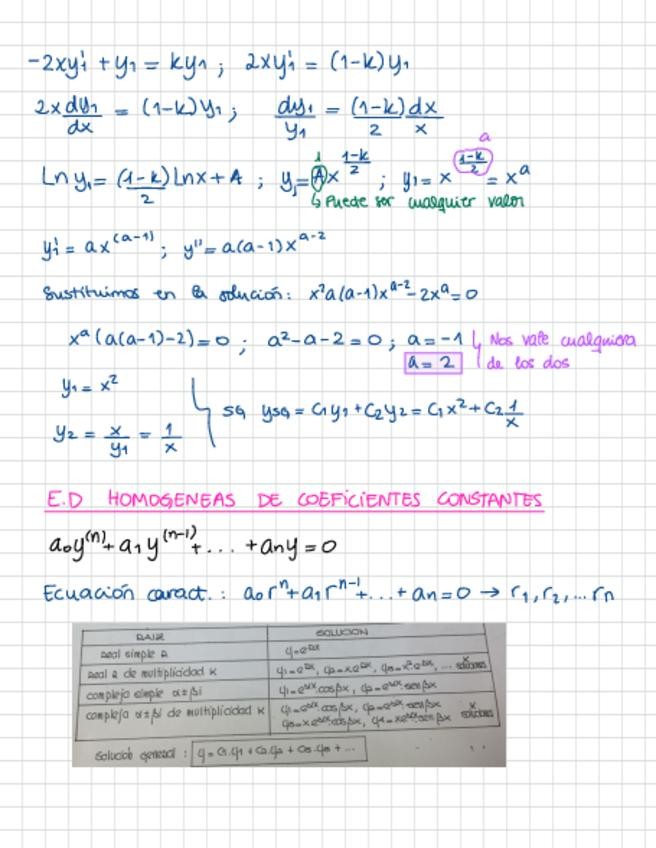 -2xy₁' + y₁ = ky₁ ; 2xy₁' = (1-k)y₁
2x dy₁/dx = (1-k)y₁ ; dy₁/y₁ = (1-k)/2 dx/x
Ln y₁ = (1-k)/2 Ln x + A ; y₁ = A x^((1-k)/2) ; y₁ = x^((1-k)/2) = x^a
1
a
↳ Puede ser cualquier valor
y₁' = ax^(a-1) ; y'' = a(a-1)x^(a-2)
Sustituimos en la solución: x²a(a-1)x^(a-2) - 2x^a = 0
x^a (a(a-1)-2) = 0 ; a²-a-2 = 0 ; a = -1
a = 2
Nos vale cualquiera
de los dos
y₁ = x²
y₂ = x/y₁ = 1/x
SG y_SG = C₁y₁ + C₂y₂ = C₁x² + C₂ 1/x
E.D HOMOGENEAS DE COEFICIENTES CONSTANTES
a₀y^(n) + a₁y^(n-1) + ... + aₙy = 0
Ecuación caract. : a₀rⁿ + a₁rⁿ⁻¹ + ... + aₙ = 0 → r₁, r₂, ... rₙ
RAIZ SOLUCION
real simple
real de multiplicidad K
compleja simple α±βi
compleja α±βi de multiplicidad K
Solución general : y = C₁·y₁ + C₂·y₂ + C₃·y₃ + ...